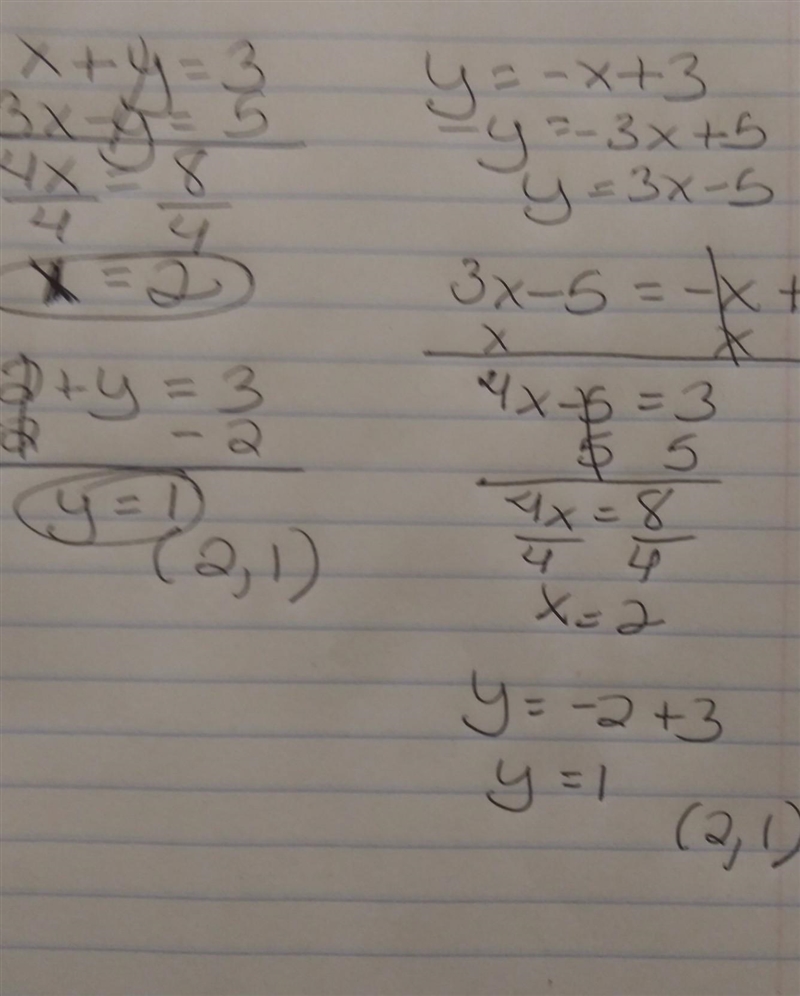 x + y = 3
3x - y = 5
4x = 8
4 4
x = 2
2 + y = 3
2 - 2
y = 1
(2,1)
y = -x + 3
-y = -3x + 5
y = 3x - 5
3x - 5 = -x +
x x
4x - 5 = 3
5 5
4x = 8
4 4
x = 2
y = -2 + 3
y = 1
(2,1)